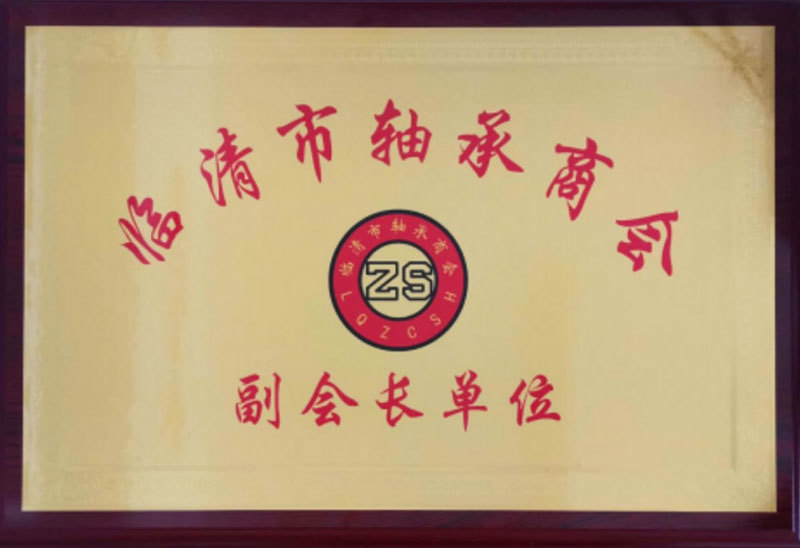 临清市轴承商会
临清市轴承商会
ZS
LQZCSH
副会长单位